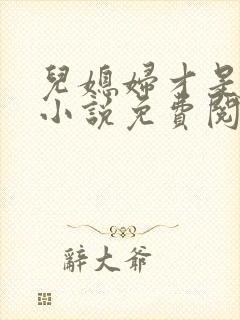 兒媳婦才是
小說免費閱
辭大爺